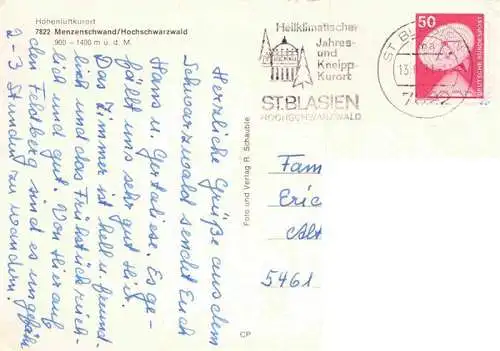 Höhenluftkurort
7822 Menzenschwand/Hochschwarzwald
900 – 1400 m ü. d. M.
Herzliche Grüße aus dem
Schwarzwald sendet Euch
Hans u. Gertaliese. Es ge-
fällt uns sehr gut hier.
Das Zimmer ist hell u. freund-
lich und das Frühstück reich-
lich und gut. Von hier auf
den Feldberg sind es ungefähr
2-3 Stunden zu wandern.
Foto und Verlag R. Schäuble
CP
Heilklimatischer
Jahres-
und
Kneipp-
Kurort
ST. BLASIEN
HOCHSCHWARZWALD
ST. BLASIEN
13.
7822
50
DEUTSCHE BUNDESPOST
Fam
Eric
Alt
5461